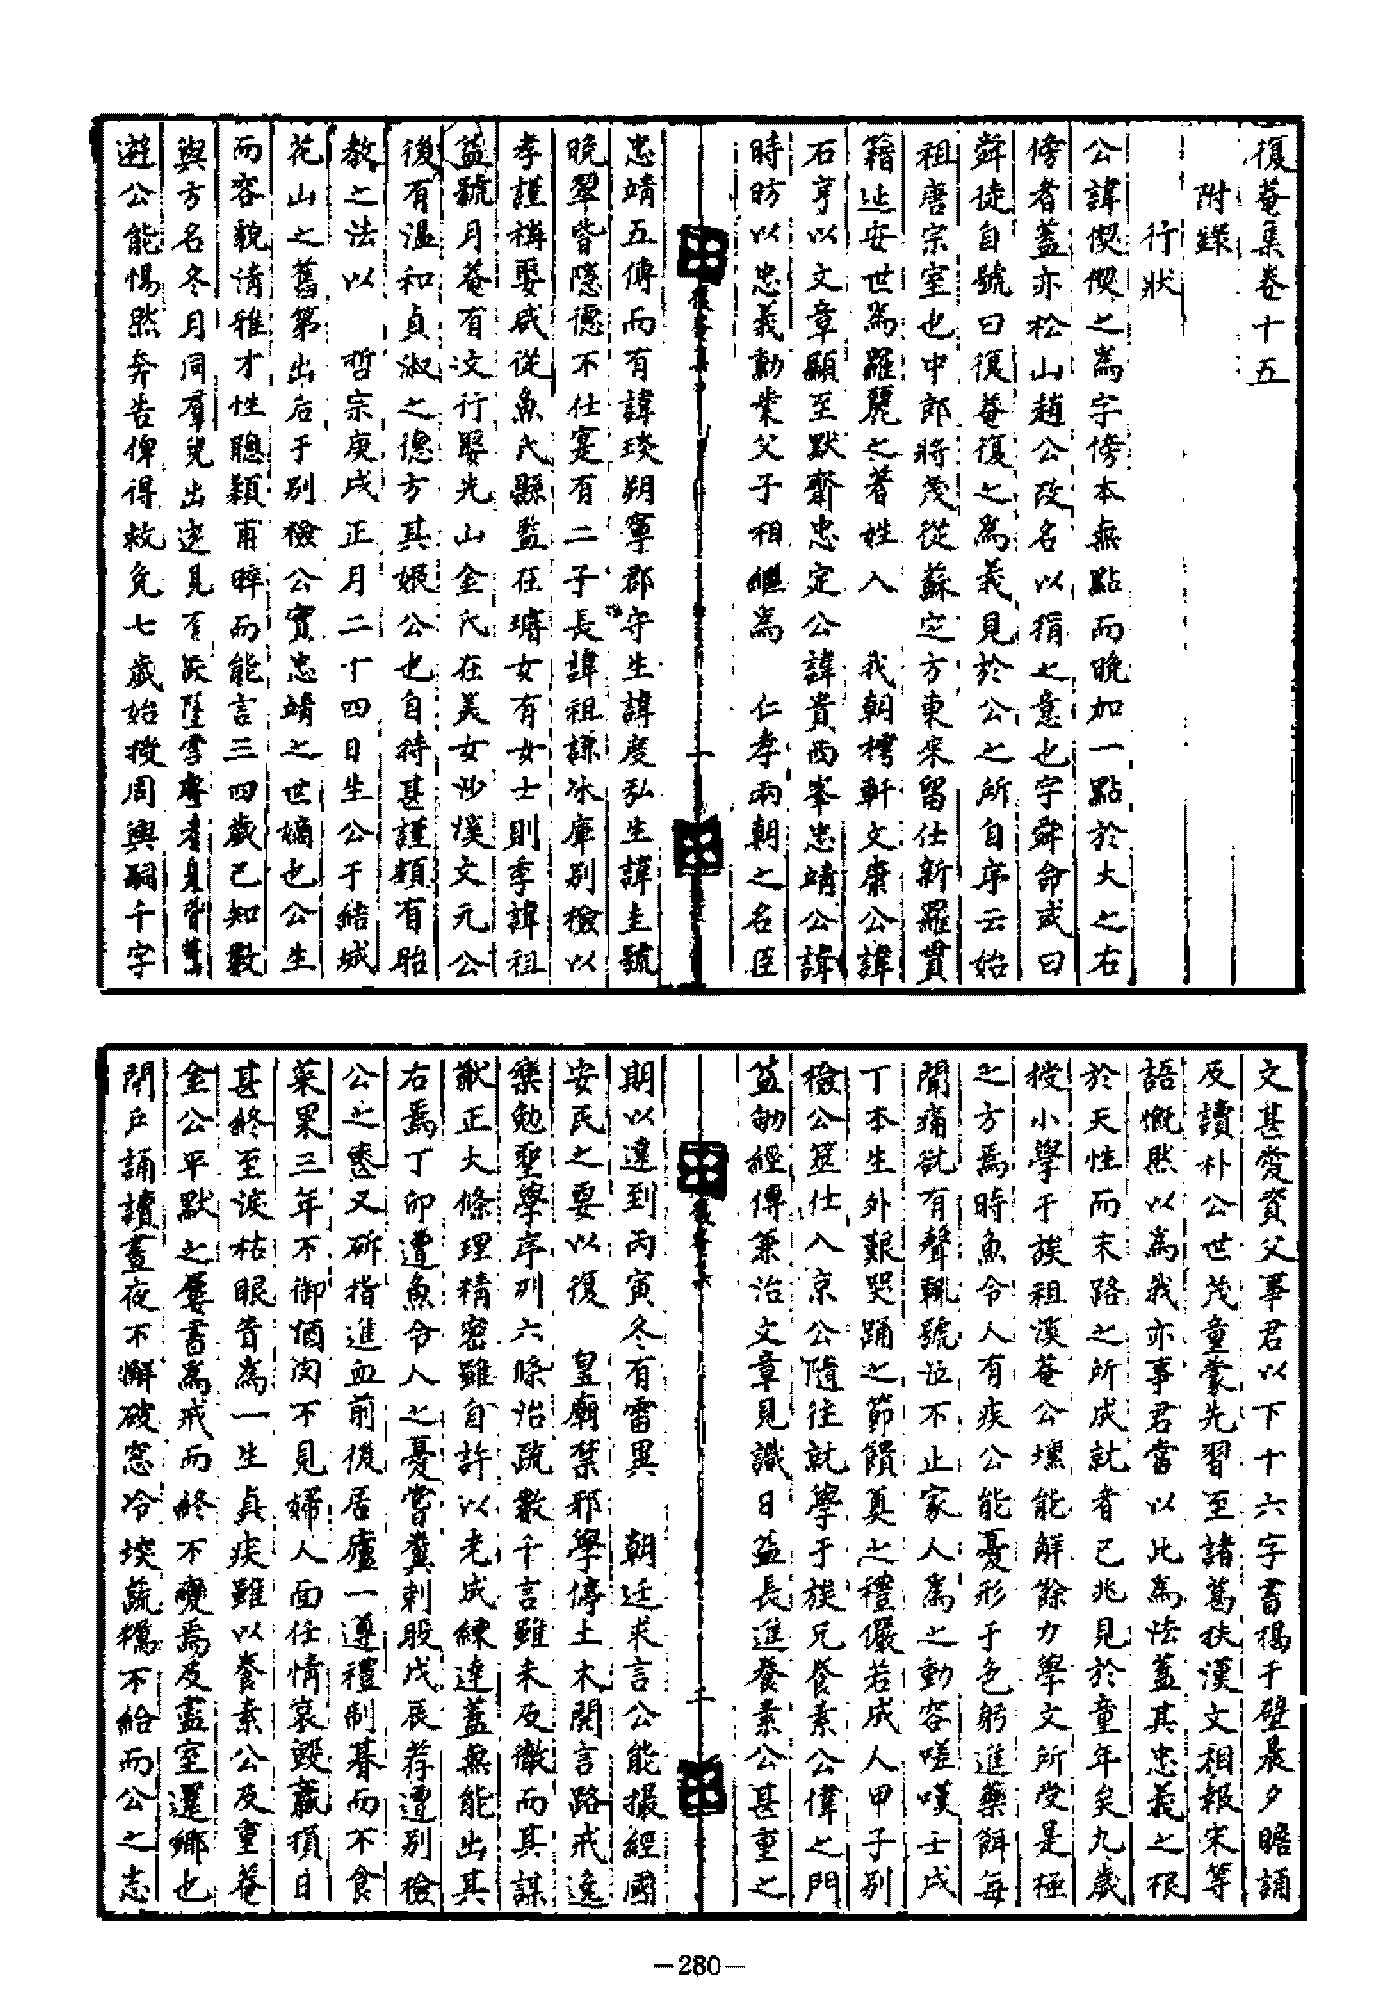 復菴集卷十五
附錄
行狀
公諱偰偰之爲字傍本無點而晩加一點於大之右
傍者蓋亦松山趙公改名以狷之意也字舜命或曰
舜徒自號曰復菴復之爲義見於公之所自序云始
祖唐宗室也中郎將茂從蘇定方東來留仕新羅貫
籍延安世爲羅麗之著姓入 我朝樗軒文康公諱
石亨以文章顯至默齋忠定公諱貴西峯忠靖公諱
時昉以忠義勳業父子相繼爲 仁孝兩朝之名臣
忠靖五傳而有諱琰朔寧郡守生諱度弘生諱圭號
晩翠皆隱德不仕寔有二子長諱祖謙氷庫別檢以
孝謹稱娶咸從魚氏縣監在璿女有女士則季諱祖
益號月菴有文行娶光山金氏在美女沙溪文元公
後有溫和貞淑之德方其娠公也自待甚謹類有胎
敎之法以 哲宗庚戌正月二十四日生公于結城
花山之舊第出后于別檢公實忠靖之世嫡也公生
而容貌淸雅才性聰穎甫晬而能言三四歲已知數
與方名冬月同羣兒出遊見有跌墮雪壑者身皆
避公能惕然奔告俾得救免七歲始授周興嗣千字
文甚愛資父事君以下十六字書揭于壁晨夕瞻誦
及讀朴公世茂童蒙先習至諸葛扶漢文相報宋等
語慨然以爲我亦事君當以此爲法蓋其忠義之根
於天性而末路之所成就者已兆見於童年矣九歲
授小學于族祖溪菴公㙾能解餘力學文所受是極
之方焉時魚令人有疾公能憂形于色躬進藥餌每
聞痛欲有聲輒號泣不止家人爲之動容嗟嘆壬戌
丁本生外艱哭踊之節饋奠之禮儼若成人甲子別
檢公筮仕入京公隨往就學于族兄養素公偉之門
益劬經傳兼治文章見識日益長進養素公甚重之
期以遠到丙寅冬有雷異 朝廷求言公能撮經國
安民之要以復 皇廟禁邪學停土木開言路戒逸
樂勉聖學序列六條治疏數千言雖未及徹而其謀
猷正大條理精密雖自許以老成練達蓋無能出其
右焉丁卯遭魚令人之憂嘗糞刺股戊辰荐遭別檢
公之喪又斫指進血前後居廬一遵禮制朞而不食
菜果三年不御酒肉不見婦人面任情哀毀羸損日
甚終至淚枯眼眚爲一生眞疾雖以養素公及重菴
金公平默之屢書爲戒而終不變焉及盡室還鄉也
閉戶誦讀晝夜不懈破窓冷埃蔬糲不給而公之志
一
二
復菴集
—280—